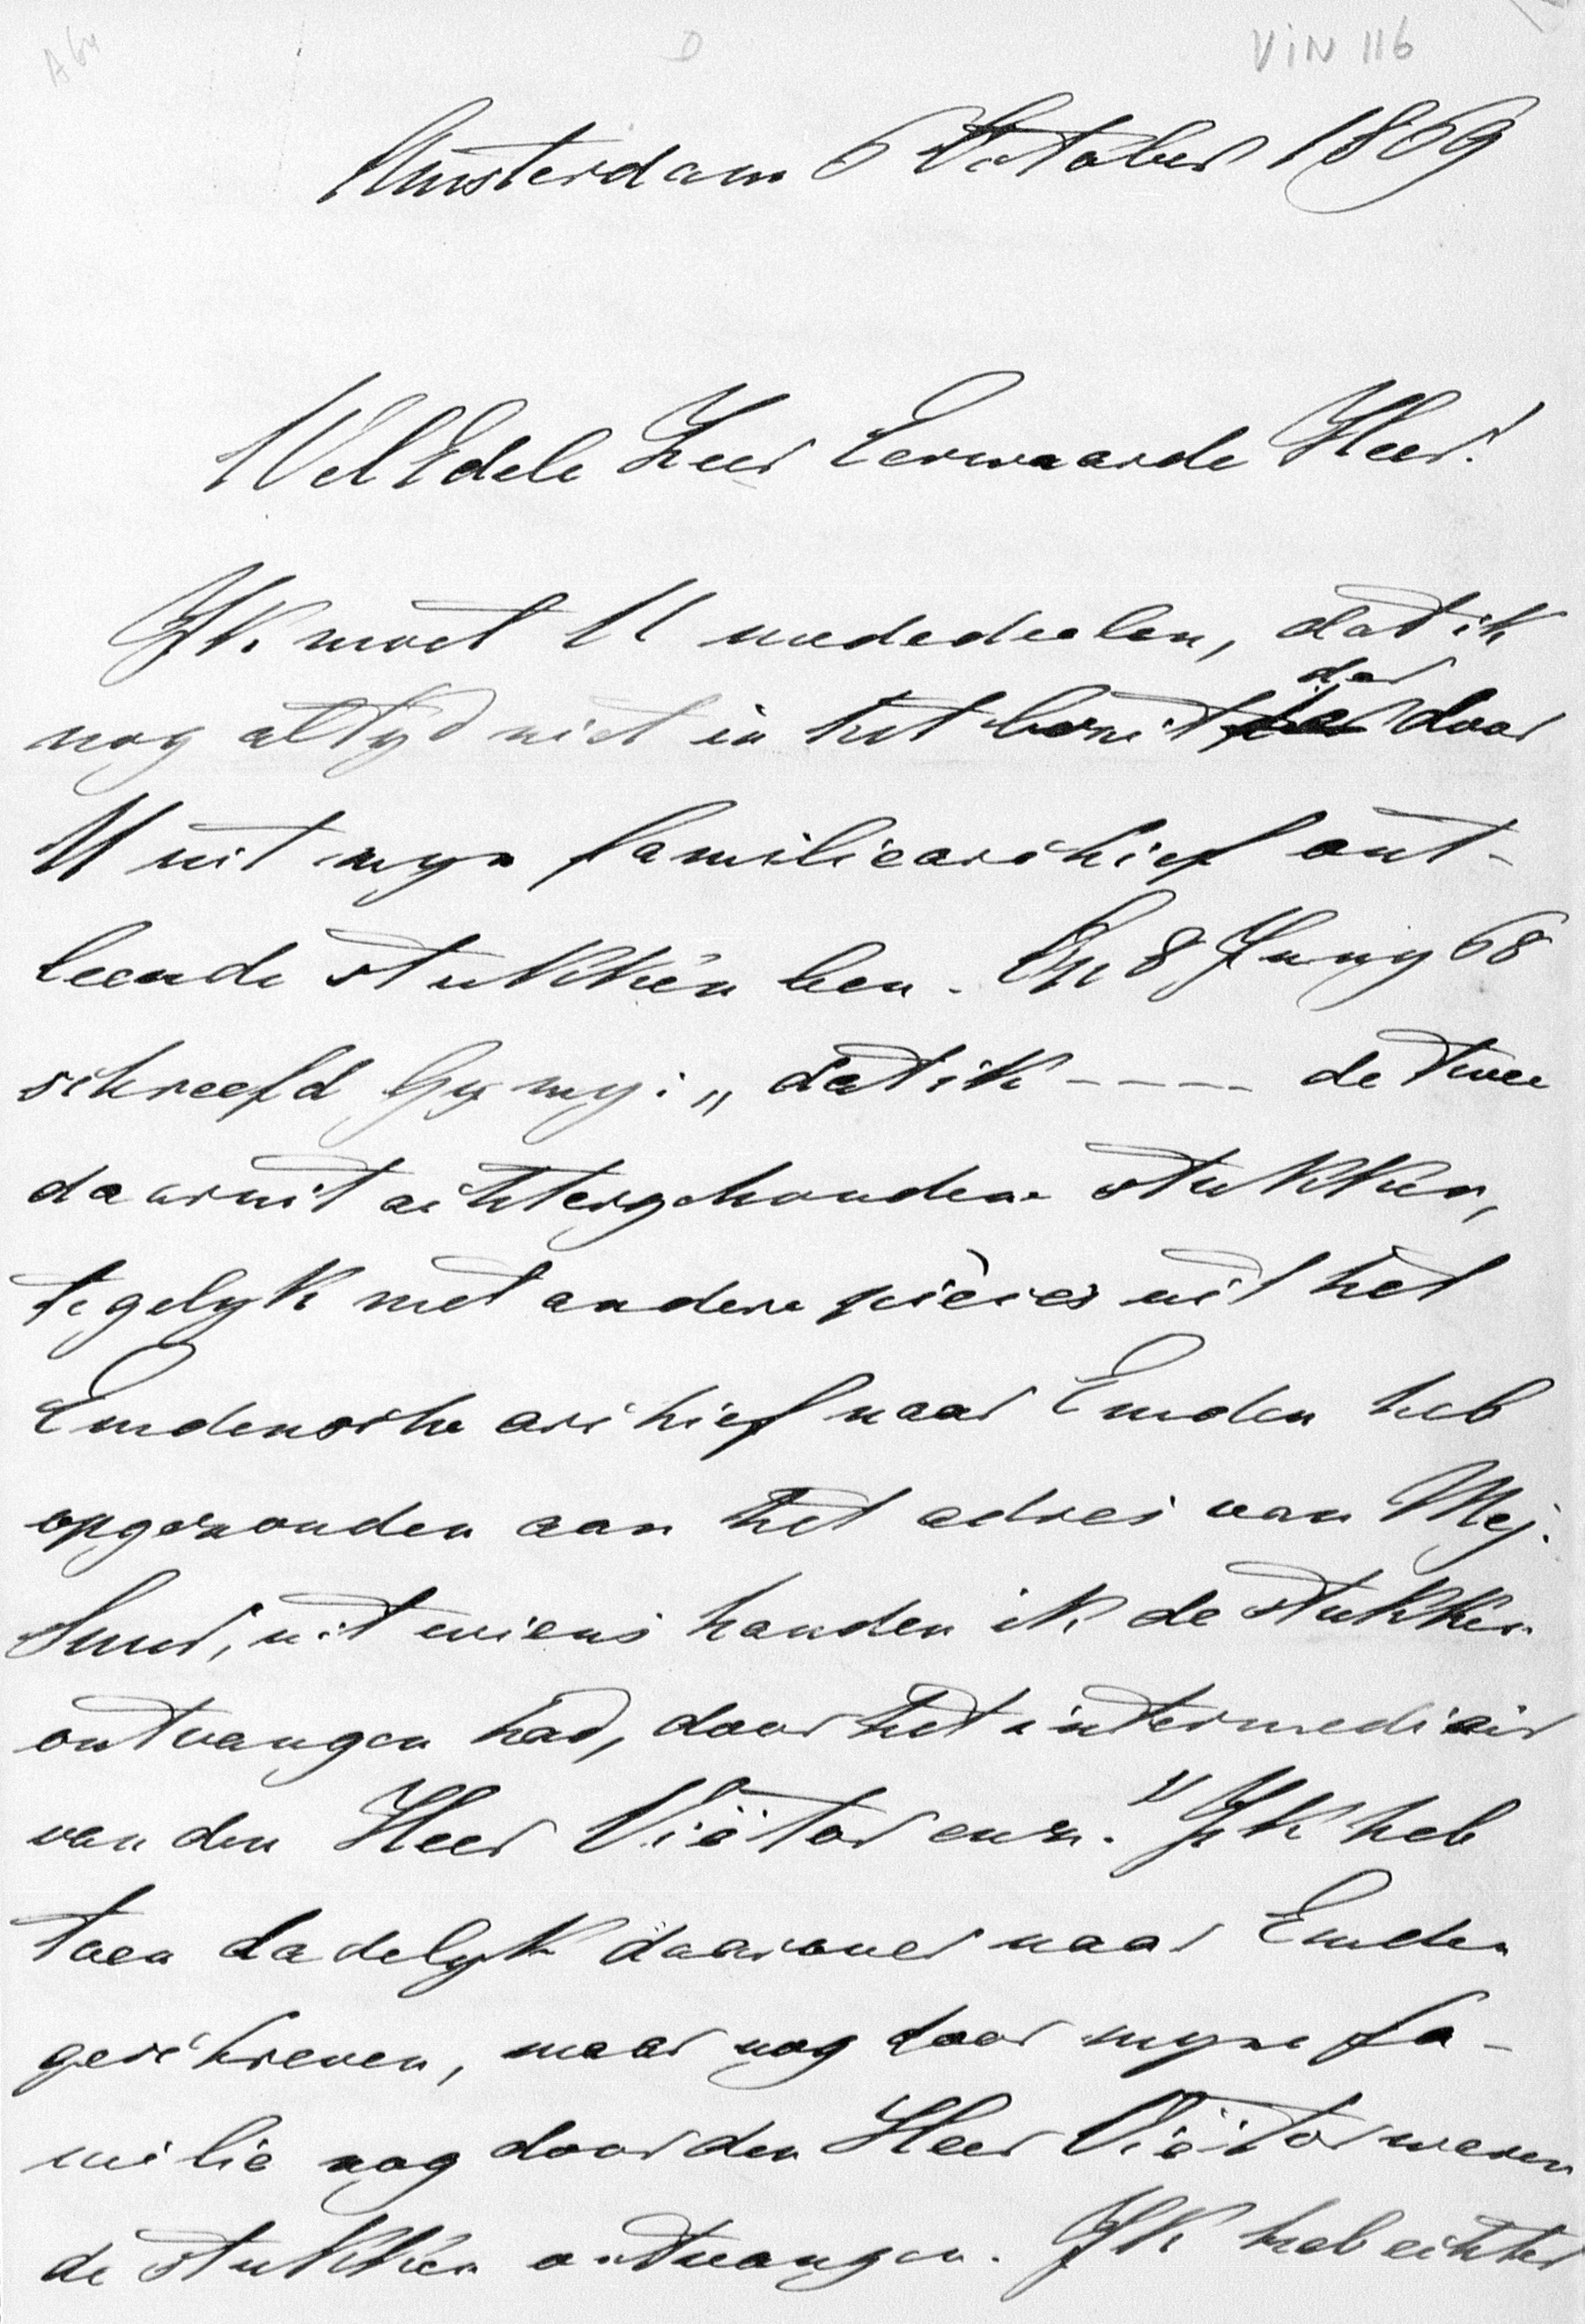 A64 D VIN 116
Amsterdam 6 October 1869
WelEdele Zeer Eerwaarde Heer!
Ik moet U mededeelen, dat ik
nog altyd niet in het bezit der door
U uit myn familiearchief ont-
leende stukken ben. Op 8 Juny 68
schreefd Gy my: „dat ik ---- de twee
daaruit achtergehouden stukken,
tegelyk met andere pièces uit het
Emdensche archief naar Emden heb
opgezonden aan het adres van Mej.
Suur, uit wiens handen ik de stukken
ontvangen had, door het intermediair
van den Heer Viëtor enz." Ik heb
toen dadelyk daarover naar Emden
geschreven, maar nog door myne fa-
milie nog door den Heer Viëtor waren
de stukken ontvangen. Ik heb echter